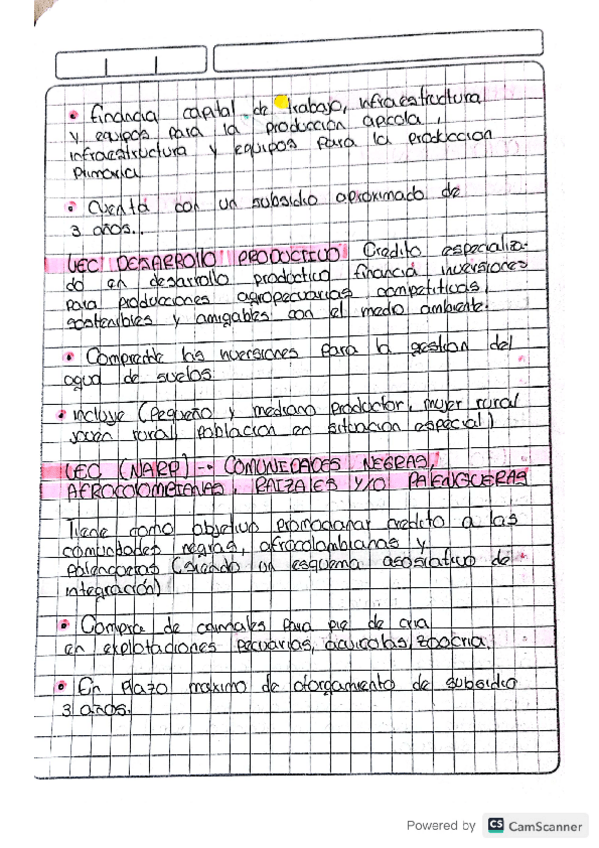 • financia capital de trabajo, infraestructura
y equipos para la producción apicola,
infraestructura y equipos para la producción
primaria
• Cuenta con un subsidio aproximado de
3 años..
LEC DESARROLLO PRODUCTIVO Credito especializa-
do en desarrollo productico financia inversiones
para producciones agropecuarias competitivas,
sostenibles y amigables con el medio ambiente.
• Comprende las inversiones para la gestion del
agua de suelos
• incluye (pequeño y mediano productor, mujer rural
joven rural, Poblacion en situacion especial)
LEC (NARP) -- COMUNIDADES NEGRAS,
AFROCOLOMBIANAS, RAIZALES Y/O PALENQUERAS
Tiene como objetivo promocionar credito a las
comunidades negras, afrocolombianas y
palenqueras (siendo un esquema asosiativo de
integración)
• Compra de animales para pie de cria
en explotaciones pecuarias, acuicolas, zoocria.
• En Plazo maximo de otorgamiento de subsidio
3 años.
Powered by CS CamScanner